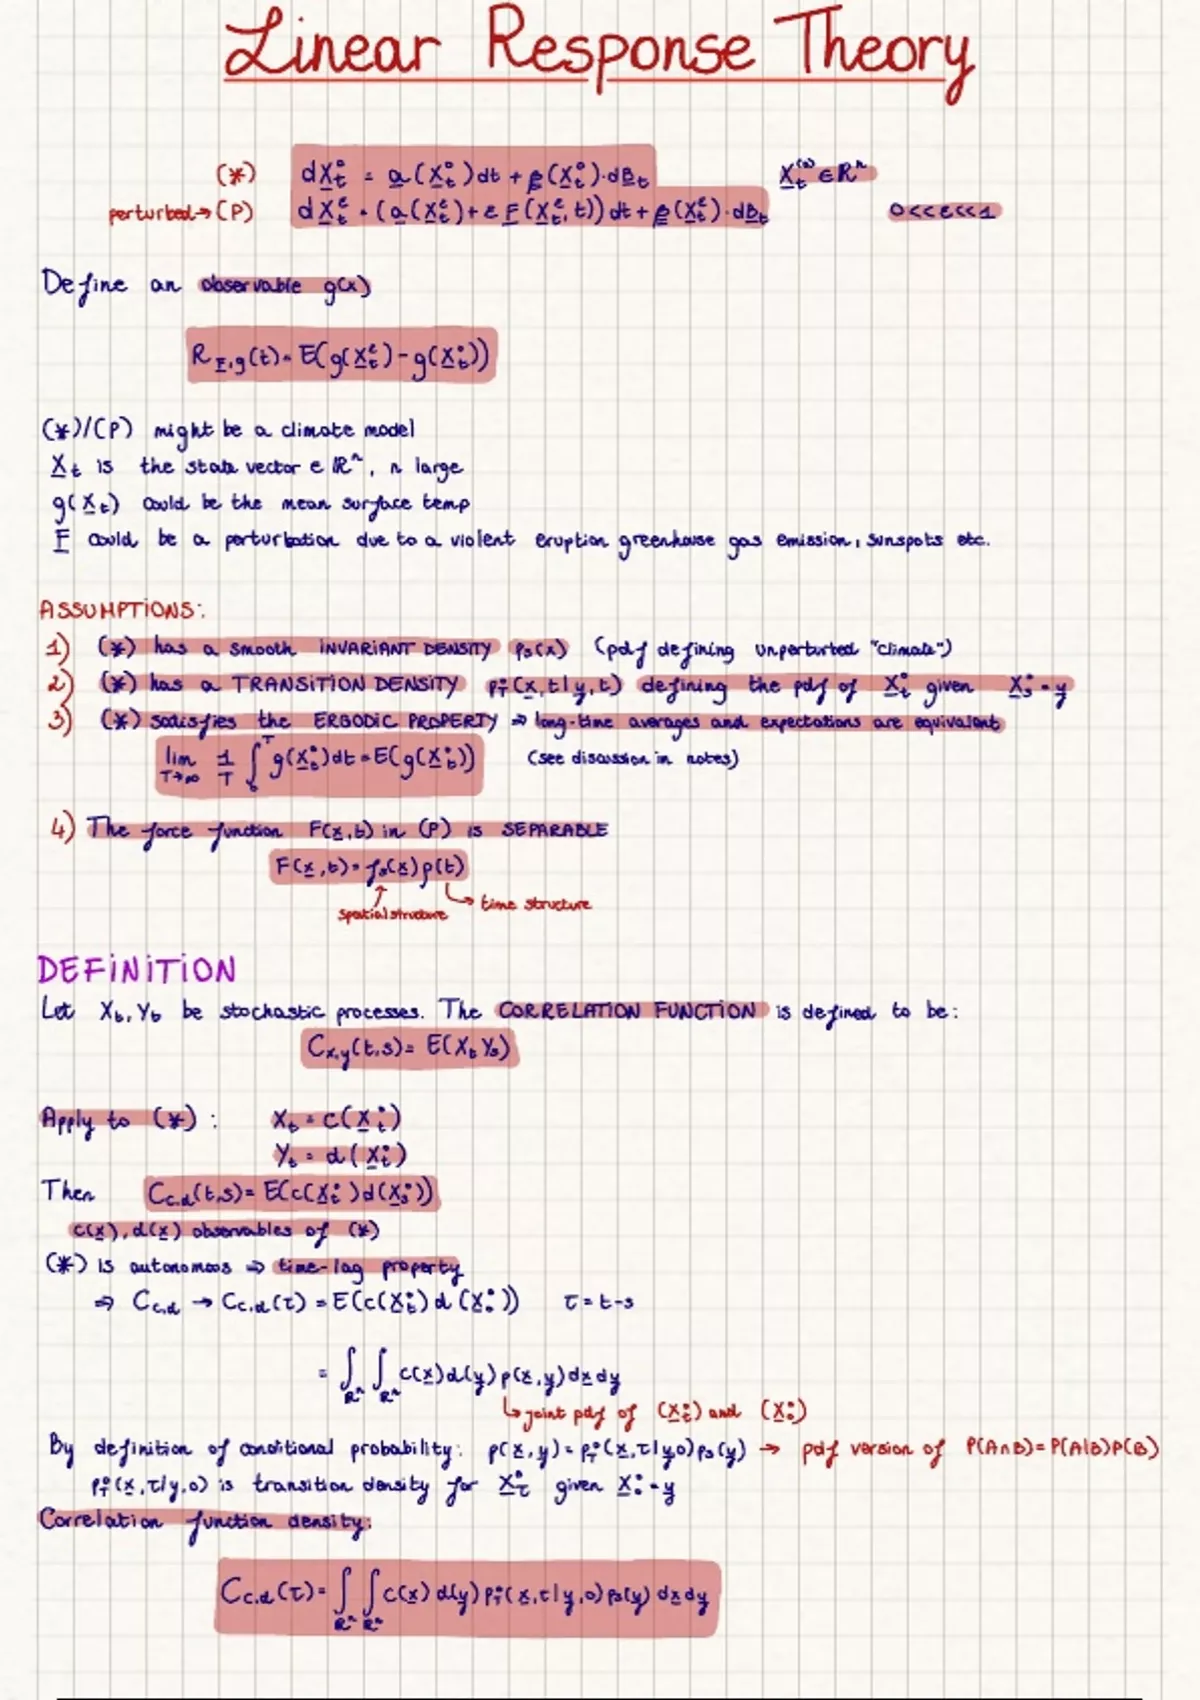 Linear Response Theory
(*) dX_t^0 = a(X_t^0)dt + β(X_t^0)·dB_t X_t^(0) ∈ ℝ^n
perturbed → (P) dX_t^ε = (a(X_t^ε) + ε F(X_t^ε, t))dt + β(X_t^ε)·dB_t 0<<ε<<1
Define an observable g(x)
R_F,g(t) = E(g(X_t^ε) - g(X_t^0))
(*)/(P) might be a climate model
X_t is the state vector ∈ ℝ^n, n large
g(X_t) could be the mean surface temp
F could be a perturbation due to a violent eruption greenhouse gas emission, sunspots etc.
ASSUMPTIONS:
1) (*) has a smooth INVARIANT DENSITY p_s(x) (pdf defining unperturbed "climate")
2) (*) has a TRANSITION DENSITY p_T^0(x,t|y,t) defining the pdf of X_t^0 given X_s^0 = y
3) (*) satisfies the ERGODIC PROPERTY ⇒ long-time averages and expectations are equivalent
lim_T→∞ 1/T ∫_0^T g(X_t^0)dt = E(g(X_t^0)) (see discussion in notes)
4) The force function F(x,t) in (P) is SEPARABLE
F(x,t) = f_s(x)ρ(t)
spatial structure time structure
DEFINITION
Let X_t, Y_t be stochastic processes. The CORRELATION FUNCTION is defined to be:
C_x,y(t,s) = E(X_t Y_s)
Apply to (*) : X_t = c(X_t^0)
Y_t = d(X_t^0)
Then C_c,d(t,s) = E(c(X_t^0)d(X_s^0))
c(x), d(x) observables of (*)
(*) is autonomous ⇒ time-lag property
⇒ C_c,d → C_c,d(τ) = E(c(X_t^0)d(X_0^0)) τ = t-s
= ∫_ℝ^n ∫_ℝ^n c(x)d(y)p(x,y)dx dy
↳ joint pdf of (X_t^0) and (X_0^0)
By definition of conditional probability: p(x,y) = p_T^0(x,τ|y,0)p_s(y) → pdf version of P(A∩B)=P(A|B)P(B)
p_T^0(x,τ|y,0) is transition density for X_τ^0 given X_0^0 = y
Correlation function density:
C_c,d(τ) = ∫_ℝ^n ∫_ℝ^n c(x)d(y)p_T^0(x,τ|y,0)p_s(y)dx dy